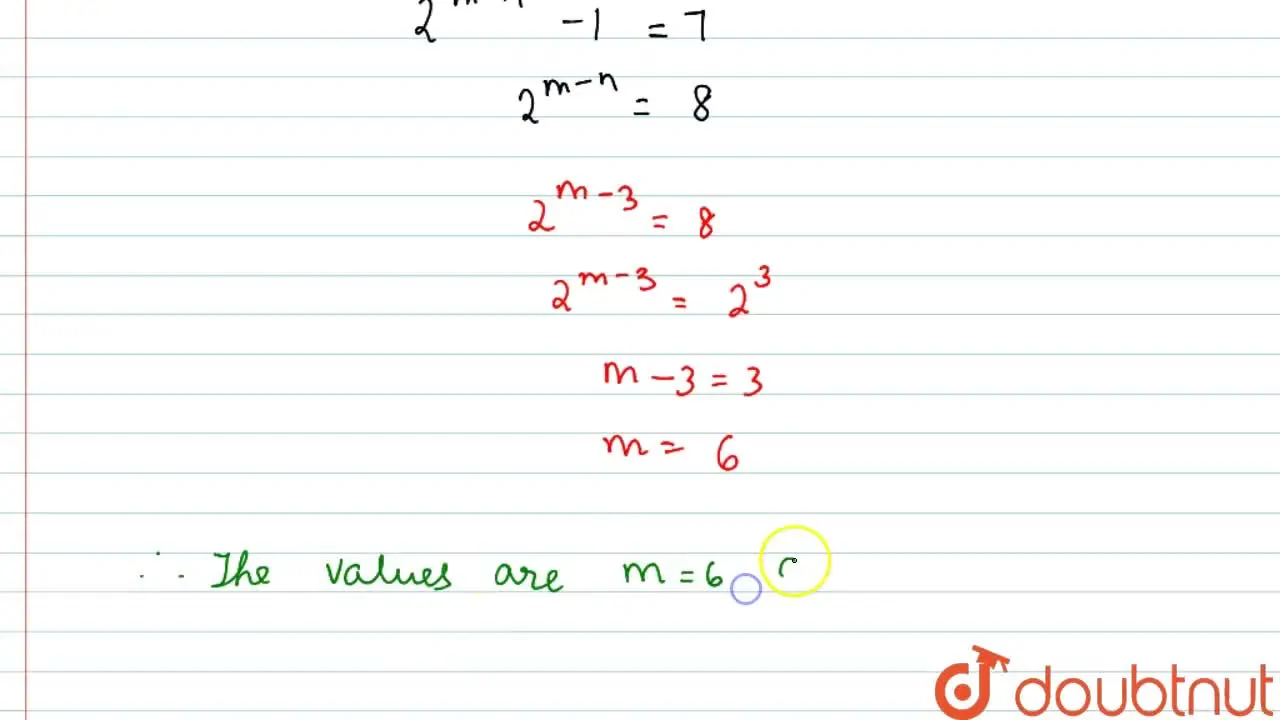 2^{m-n} - 1 = 7
2^{m-n} = 8
2^{m-3} = 8
2^{m-3} = 2^3
m - 3 = 3
m = 6
∴ The values are m = 6
doubtnut